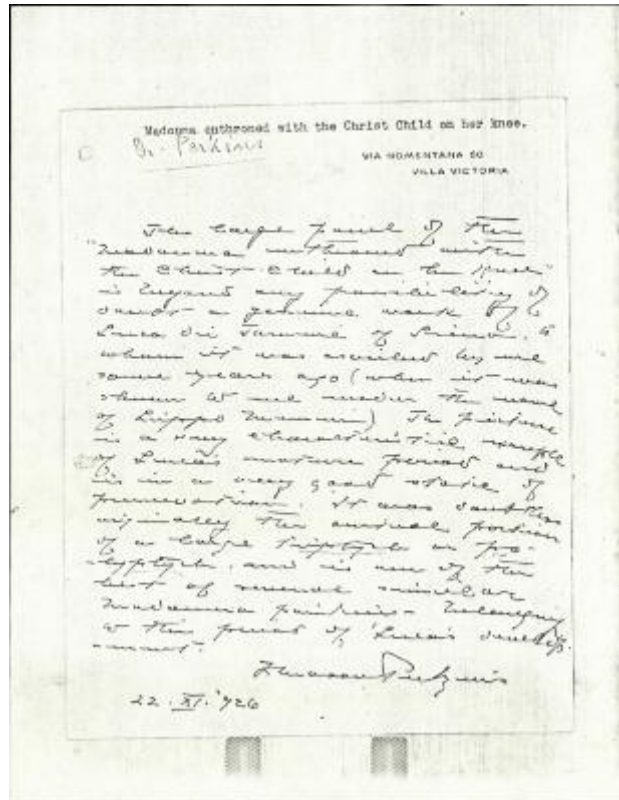 Madonna enthroned with the Christ Child on her knee.
Dr. Perkins
VIA NOMENTANA 50
VILLA VICTORIA
The large panel of the
"Madonna enthroned with
the Christ Child on her Knee"
is beyond any possibility of
doubt a genuine work by
Luca di Tommè of Siena, to
whom it was ascribed by me
some years ago (when it was
shown to me under the name
of Lippo Memmi). The picture
is a very characteristic example
of Luca's mature period and
is in a very good state of
preservation. It was doubtless
originally the central portion
of a large triptych or po-
lyptych, and is one of the
best of several similar
Madonna paintings belonging
to the period of Luca's
22. XI. 1926